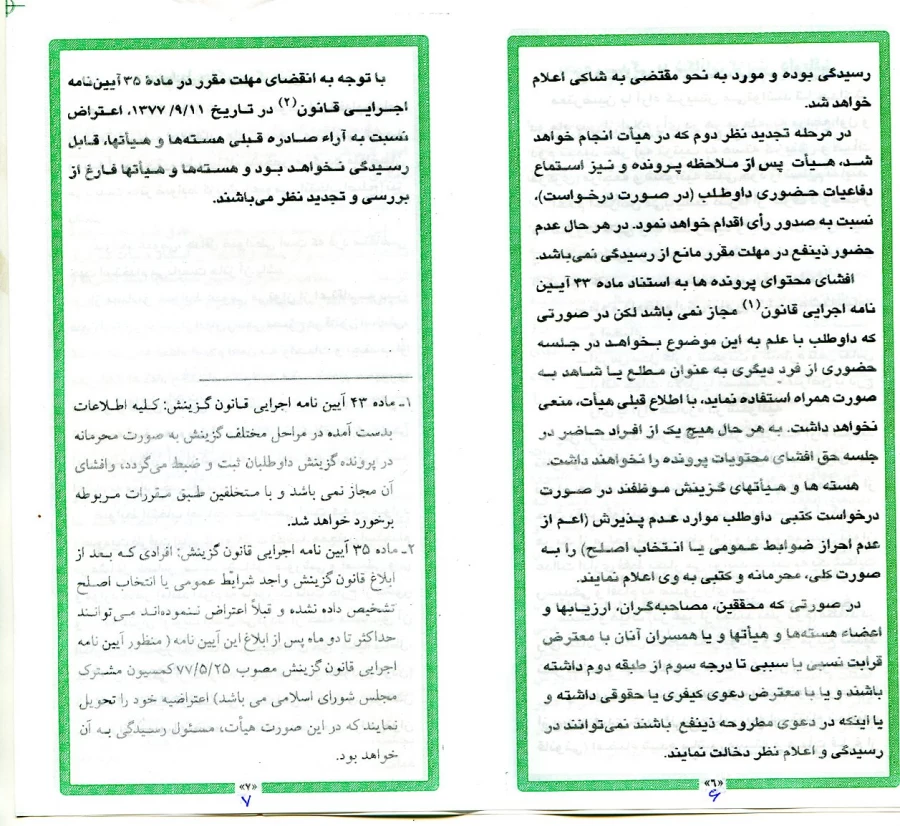 رسیدگی بوده و مورد به نحو مقتضی به شاکی اعلام
خواهد شد.
در مرحله تجدید نظر دوم که در هیأت انجام خواهد
شد، هیأت پس از ملاحظه پرونده و نیز استماع
دفاعیات حضوری داوطلب (در صورت درخواست)،
نسبت به صدور رأی اقدام خواهد نمود. در هر حال عدم
حضور ذینفع در مهلت مقرر مانع از رسیدگی نمی‌باشد.
افشای محتوای پرونده ها به استناد ماده ۳۳ آیین
نامه اجرایی قانون(۱) مجاز نمی باشد لکن در صورتی
که داوطلب با علم به این موضوع بخواهد در جلسه
حضوری از فرد دیگری به عنوان مطلع یا شاهد به
صورت همراه استفاده نماید، با اطلاع قبلی هیأت، منعی
نخواهد داشت. به هر حال هیچ یک از افراد حاضر در
جلسه حق افشای محتویات پرونده را نخواهند داشت.
هسته ها و هیأتهای گزینش موظفند در صورت
درخواست کتبی داوطلب موارد عدم پذیرش (اعم از
عدم احراز ضوابط عمومی یا انتخاب اصلح) را به
صورت کلی، محرمانه و کتبی به وی اعلام نمایند.
در صورتی که محققین، مصاحبه‌گران، ارزیابها و
اعضاء هسته‌ها و هیأتها و یا همسران آنان با معترض
قرابت نسبی یا سببی تا درجه سوم از طبقه دوم داشته
باشند و یا با معترض دعوی کیفری یا حقوقی داشته و
یا اینکه در دعوی مطروحه ذینفع باشند نمی‌توانند در
رسیدگی و اعلام نظر دخالت نمایند.
«۶»
۶
با توجه به انقضای مهلت مقرر در مادهٔ ۳۵ آیین‌نامه
اجرایی قانون(۲) در تاریخ ۱۳۷۷/۹/۱۱، اعتراض
نسبت به آراء صادره قبلی هسته‌ها و هیأتها، قابل
رسیدگی نخواهد بود و هسته‌ها و هیأتها فارغ از
بررسی و تجدید نظر می‌باشند.
۱ـ ماده ۴۳ آیین نامه اجرایی قانون گزینش: کلیه اطلاعات
بدست آمده در مراحل مختلف گزینش به صورت محرمانه
در پرونده گزینش داوطلبان ثبت و ضبط می‌گردد، وافشای
آن مجاز نمی باشد و با متخلفین طبق مقررات مربوطه
برخورد خواهد شد.
۲ـ ماده ۳۵ آیین نامه اجرایی قانون گزینش: افرادی که بعد از
ابلاغ قانون گزینش واجد شرایط عمومی یا انتخاب اصلح
تشخیص داده نشده و قبلاً اعتراض ننموده‌اند می‌توانند
حداکثر تا دو ماه پس از ابلاغ این آیین نامه ( منظور آیین نامه
اجرایی قانون گزینش مصوب ۷۷/۵/۲۵ کمیسیون مشترک
مجلس شورای اسلامی می باشد) اعتراضیه خود را تحویل
نمایند که در این صورت هیأت، مسئول رسیدگی به آن
خواهد بود.
«۷»
۷